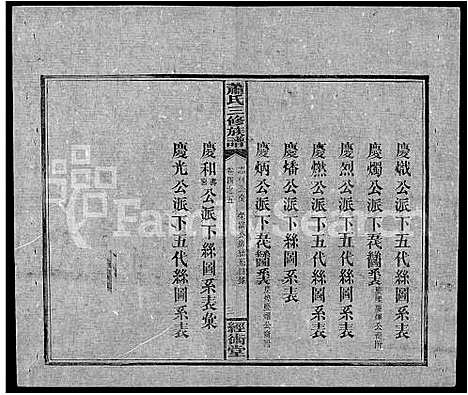 慶熾公派下五代絲圖系表
慶燭公派下
慶烈公派下五代絲圖系表
慶燃公派下五代絲圖系表
慶燔公派下絲圖系表
慶炳公派下
蕭氏三修族譜
卷四之五
經術堂
慶和公派下絲圖系表彙
慶光公派下五代絲圖系表
FamilySearch